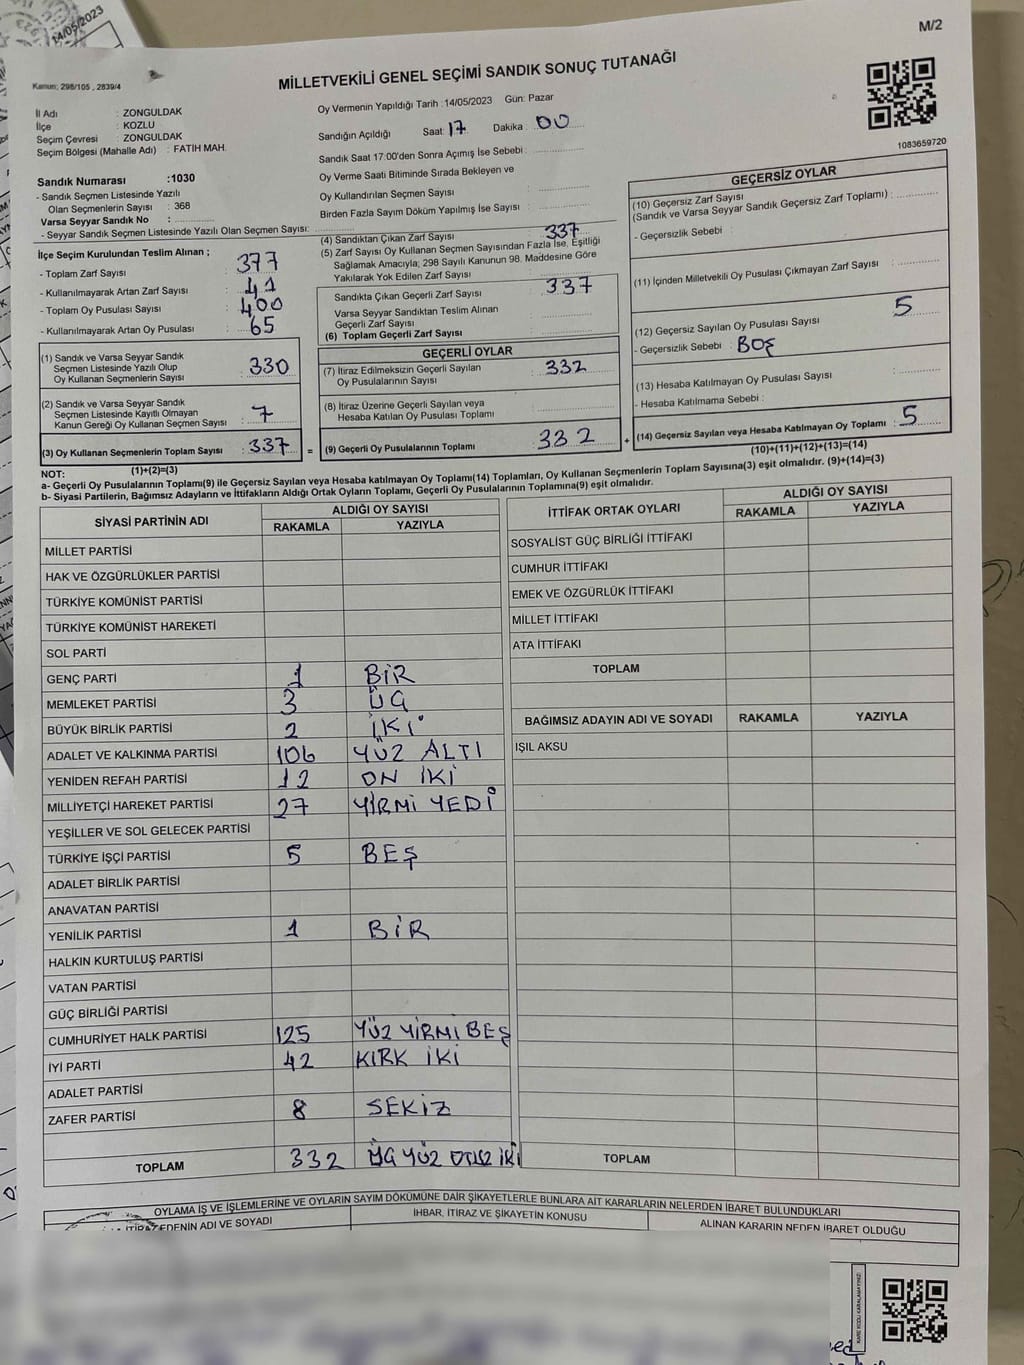 14/05/2023
M/2
Kanun; 298/105 , 2839/4
MİLLETVEKİLİ GENEL SEÇİMİ SANDIK SONUÇ TUTANAĞI
İl Adı : ZONGULDAK
İlçe : KOZLU
Seçim Çevresi : ZONGULDAK
Seçim Bölgesi (Mahalle Adı) : FATİH MAH.
Oy Vermenin Yapıldığı Tarih : 14/05/2023 Gün: Pazar
Sandığın Açıldığı Saat: 17 Dakika : 00
Sandık Saat 17.00'den Sonra Açımış İse Sebebi :
Oy Verme Saati Bitiminde Sırada Bekleyen ve
Oy Kullandırılan Seçmen Sayısı :
Birden Fazla Sayım Döküm Yapılmış İse Sayısı :
1083659720
Sandık Numarası :1030
- Sandık Seçmen Listesinde Yazılı
Olan Seçmenlerin Sayısı : 368
Varsa Seyyar Sandık No :
- Seyyar Sandık Seçmen Listesinde Yazılı Olan Seçmen Sayısı:
İlçe Seçim Kurulundan Teslim Alınan ;
- Toplam Zarf Sayısı : 377
- Kullanılmayarak Artan Zarf Sayısı : 41
- Toplam Oy Pusulası Sayısı : 400
- Kullanılmayarak Artan Oy Pusulası : 65
(1) Sandık ve Varsa Seyyar Sandık
Seçmen Listesinde Yazılı Olup
Oy Kullanan Seçmenlerin Sayısı : 330
(2) Sandık ve Varsa Seyyar Sandık
Seçmen Listesinde Kayıtlı Olmayan
Kanun Gereği Oy Kullanan Seçmen Sayısı : 7
(3) Oy Kullanan Seçmenlerin Toplam Sayısı : 337
(1)+(2)=(3)
(4) Sandıktan Çıkan Zarf Sayısı : 337
(5) Zarf Sayısı Oy Kullanan Seçmen Sayısından Fazla İse, Eşitliği
Sağlamak Amacıyla; 298 Sayılı Kanunun 98. Maddesine Göre
Yakılarak Yok Edilen Zarf Sayısı :
Sandıkta Çıkan Geçerli Zarf Sayısı : 337
Varsa Seyyar Sandıktan Teslim Alınan
Geçerli Zarf Sayısı :
(6) Toplam Geçerli Zarf Sayısı :
GEÇERLİ OYLAR
(7) İtiraz Edilmeksizin Geçerli Sayılan
Oy Pusulalarının Sayısı : 332
(8) İtiraz Üzerine Geçerli Sayılan veya
Hesaba Katılan Oy Pusulası Toplamı :
= (9) Geçerli Oy Pusulalarının Toplamı : 332
GEÇERSİZ OYLAR
(10) Geçersiz Zarf Sayısı
(Sandık ve Varsa Seyyar Sandık Geçersiz Zarf Toplamı) :
- Geçersizlik Sebebi :
(11) İçinden Milletvekili Oy Pusulası Çıkmayan Zarf Sayısı :
(12) Geçersiz Sayılan Oy Pusulası Sayısı : 5
- Geçersizlik Sebebi : BOŞ
(13) Hesaba Katılmayan Oy Pusulası Sayısı :
- Hesaba Katılmama Sebebi :
+ (14) Geçersiz Sayılan veya Hesaba Katılmayan Oy Toplamı : 5
(10)+(11)+(12)+(13)=(14)
NOT:
a- Geçerli Oy Pusulalarının Toplam(9) ile Geçersiz Sayılan veya Hesaba katılmayan Oy Toplamı(14) Toplamları, Oy Kullanan Seçmenlerin Toplam Sayısına(3) eşit olmalıdır. (9)+(14)=(3)
b- Siyasi Partilerin, Bağımsız Adayların ve İttifakların Aldığı Ortak Oyların Toplamı, Geçerli Oy Pusulalarının Toplamına(9) eşit olmalıdır.
SİYASİ PARTİNİN ADI ALDIĞI OY SAYISI
RAKAMLA YAZIYLA
MİLLET PARTİSİ
HAK VE ÖZGÜRLÜKLER PARTİSİ
TÜRKİYE KOMÜNİST PARTİSİ
TÜRKİYE KOMÜNİST HAREKETİ
SOL PARTİ
GENÇ PARTİ 1 BİR
MEMLEKET PARTİSİ 3 ÜÇ
BÜYÜK BİRLİK PARTİSİ 2 İKİ
ADALET VE KALKINMA PARTİSİ 106 YÜZ ALTI
YENİDEN REFAH PARTİSİ 12 ON İKİ
MİLLİYETÇİ HAREKET PARTİSİ 27 YİRMİ YEDİ
YEŞİLLER VE SOL GELECEK PARTİSİ
TÜRKİYE İŞÇİ PARTİSİ 5 BEŞ
ADALET BİRLİK PARTİSİ
ANAVATAN PARTİSİ
YENİLİK PARTİSİ 1 BİR
HALKIN KURTULUŞ PARTİSİ
VATAN PARTİSİ
GÜÇ BİRLİĞİ PARTİSİ
CUMHURİYET HALK PARTİSİ 125 YÜZ YİRMİ BEŞ
İYİ PARTİ 42 KIRK İKİ
ADALET PARTİSİ
ZAFER PARTİSİ 8 SEKİZ
TOPLAM 332 ÜÇ YÜZ OTUZ İKİ
İTTİFAK ORTAK OYLARI ALDIĞI OY SAYISI
RAKAMLA YAZIYLA
SOSYALİST GÜÇ BİRLİĞİ İTTİFAKI
CUMHUR İTTİFAKI
EMEK VE ÖZGÜRLÜK İTTİFAKI
MİLLET İTTİFAKI
ATA İTTİFAKI
TOPLAM
BAĞIMSIZ ADAYIN ADI VE SOYADI RAKAMLA YAZIYLA
IŞIL AKSU
TOPLAM
OYLAMA İŞ VE İŞLEMLERİNE VE OYLARIN SAYIM DÖKÜMÜNE DAİR ŞİKAYETLERLE BUNLARA AİT KARARLARIN NELERDEN İBARET BULUNDUKLARI
İTİRAZ EDENİN ADI VE SOYADI İHBAR, İTİRAZ VE ŞİKAYETİN KONUSU ALINAN KARARIN NEDEN İBARET OLDUĞU
KARE KODU KARALAMAYINIZ!